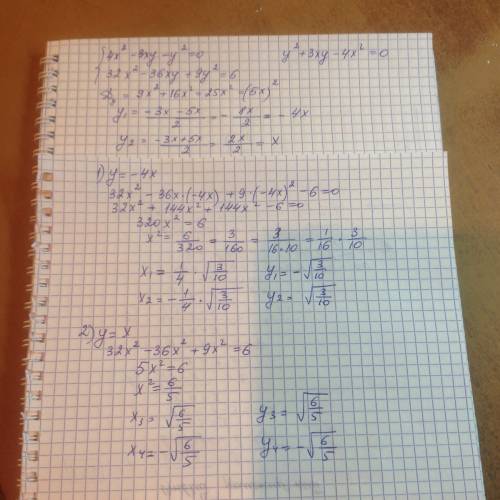 {4x² - 3xy - y² = 0      y² + 3xy - 4x² = 0
{32x² - 36xy + 9y² = 6
D₁ = 9x² + 16x² = 25x² = (5x)²
y₁ = (-3x - 5x)/2 = -8x/2 = -4x
y₂ = (-3x + 5x)/2 = 2x/2 = x
1) y = -4x
32x² - 36x·(-4x) + 9·(-4x)² - 6 = 0
32x² + 144x² + 144x² - 6 = 0
320x² = 6
x² = 6/320 = 3/160 = 3/(16·10) = 1/16 · 3/10
x₁ = 1/4 · √(3/10)      y₁ = -√(3/10)
x₂ = -1/4 · √(3/10)      y₂ = √(3/10)
2) y = x
32x² - 36x² + 9x² = 6
5x² = 6
x² = 6/5
x₃ = √(6/5)      y₃ = √(6/5)
x₄ = -√(6/5)      y₄ = -√(6/5)